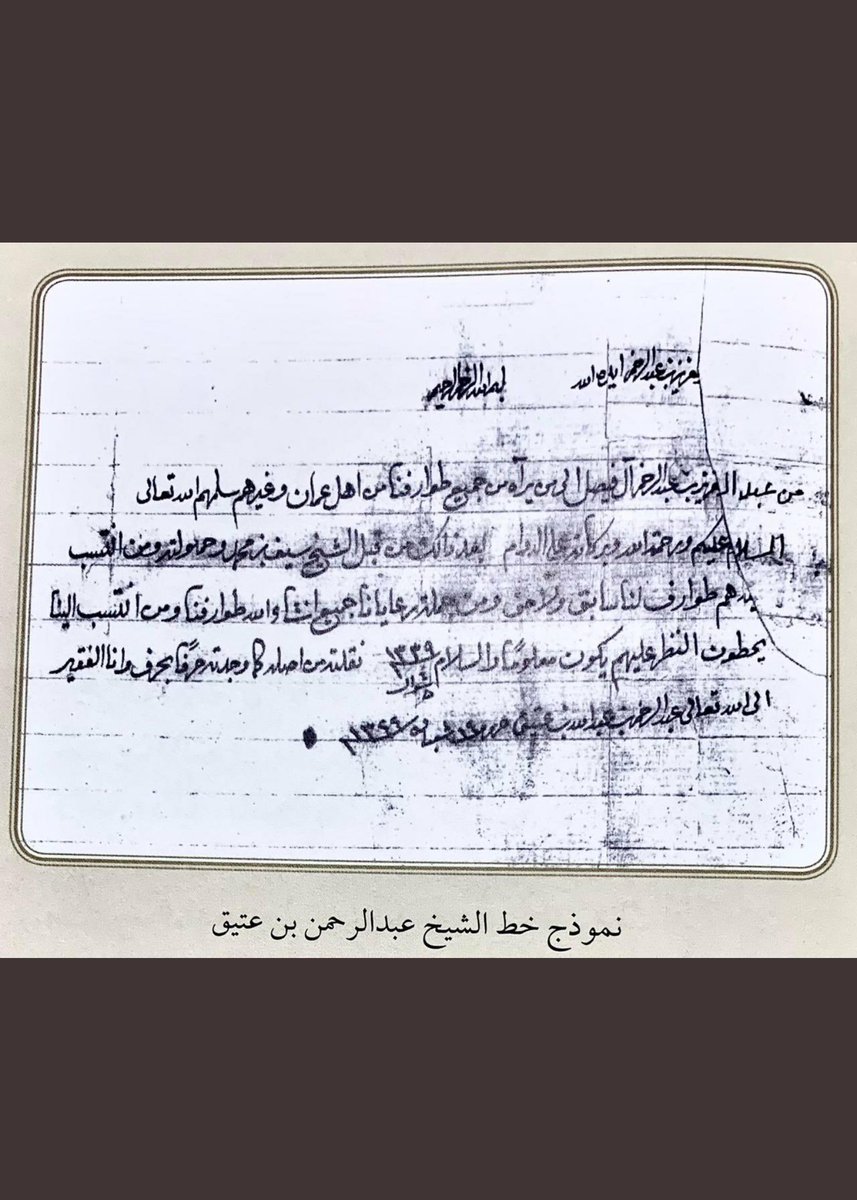 بسم الله الرحمن الرحيم
عزيز بن عبدالرحمن ايده الله
من عبد العزيز بن عبدالرحمن آل فيصل الى من يرآه من جميع طوارفنا من اهل عمران وغيرهم سلمهم الله تعالى
السلام عليكم ورحمة الله وبركاته على الدوام بعد ذالك من قبل الشيخ سيف بن محمد وحمولته ومن انتسب
هم طوارف لنا سابق ولاحق ومن رعايانا جميع انشاء الله طوارفنا ومن انتسب الينا
يحطون النظر عليهم يكون معلومًا والسلام ١٣٣٩ شوال نقلته من اصله كما وجدته حرفًا بحرف وانا الفقير
الى الله تعالى عبدالرحمن بن عبدالله بن عتيق
نموذج خط الشيخ عبدالرحمن بن عتيق